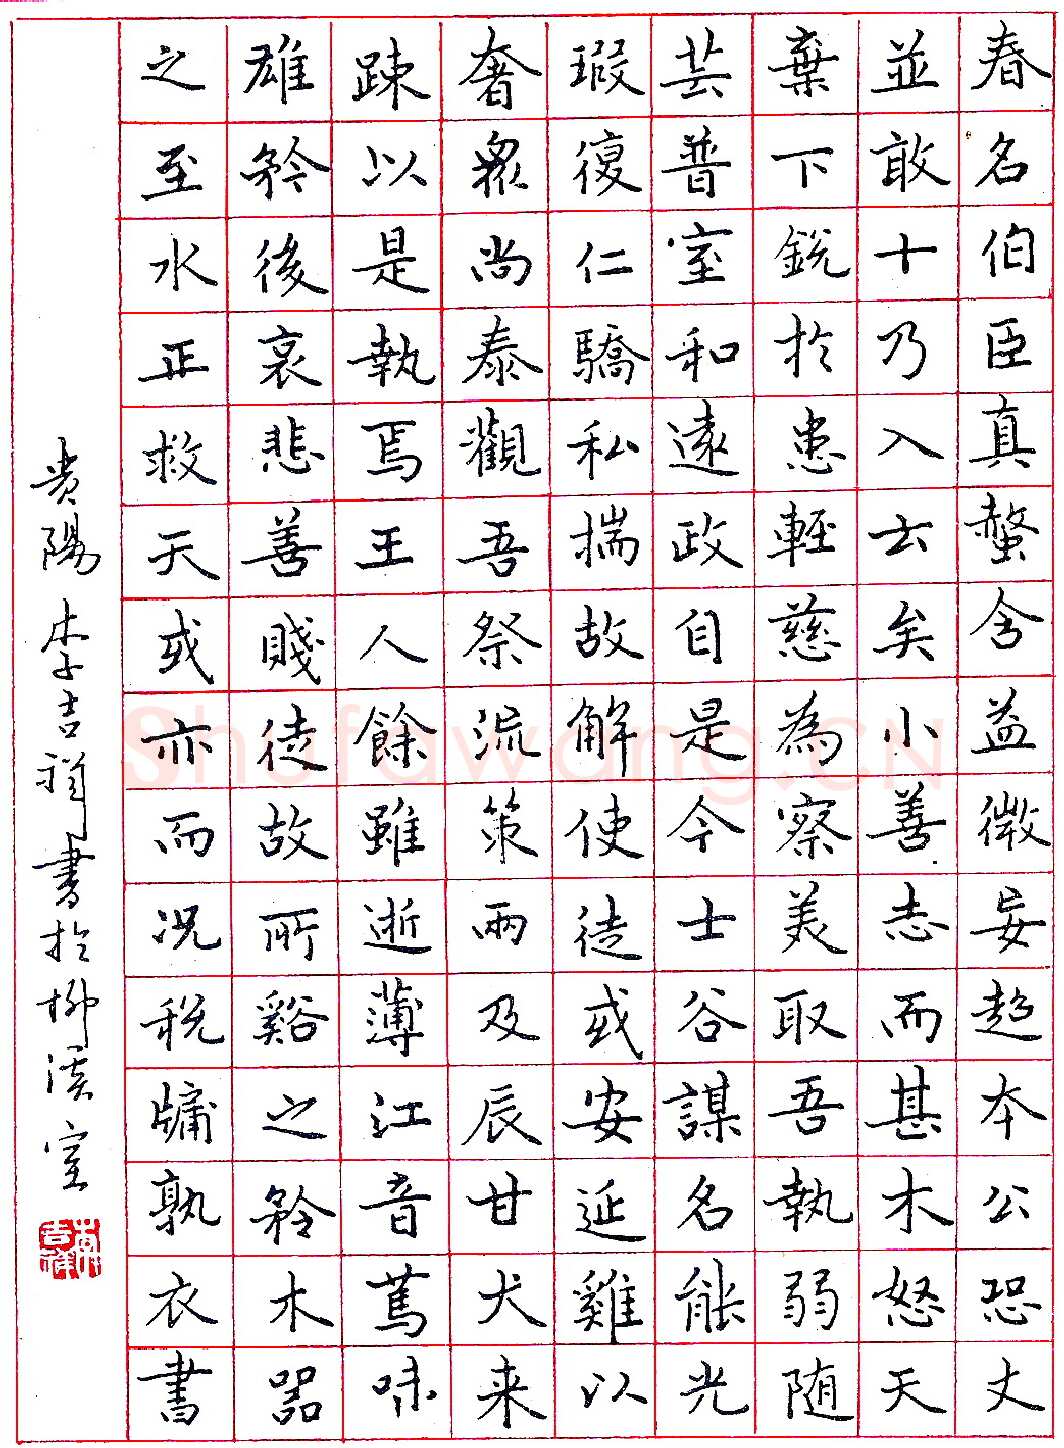 春名伯臣真螫含益微妄超本公恐丈
並敢十乃入去矣小善志而甚木怒天
棄下銳於患輕慈為察美取吾執弱随
芸普室和遠政自是今士谷謀名能光
瑕復仁驕私揣故解使徒或安延雞以
奢眾尚泰觀吾祭流策兩及辰甘犬来
踈以是執焉王人餘雖逝薄江音篤味
雄矜後哀悲善賤徒故所谿之矜木器
之至水正救天或亦而況税牗孰衣書
貴陽李吉祥書於柳溪室
李吉祥
Shufawang.CN